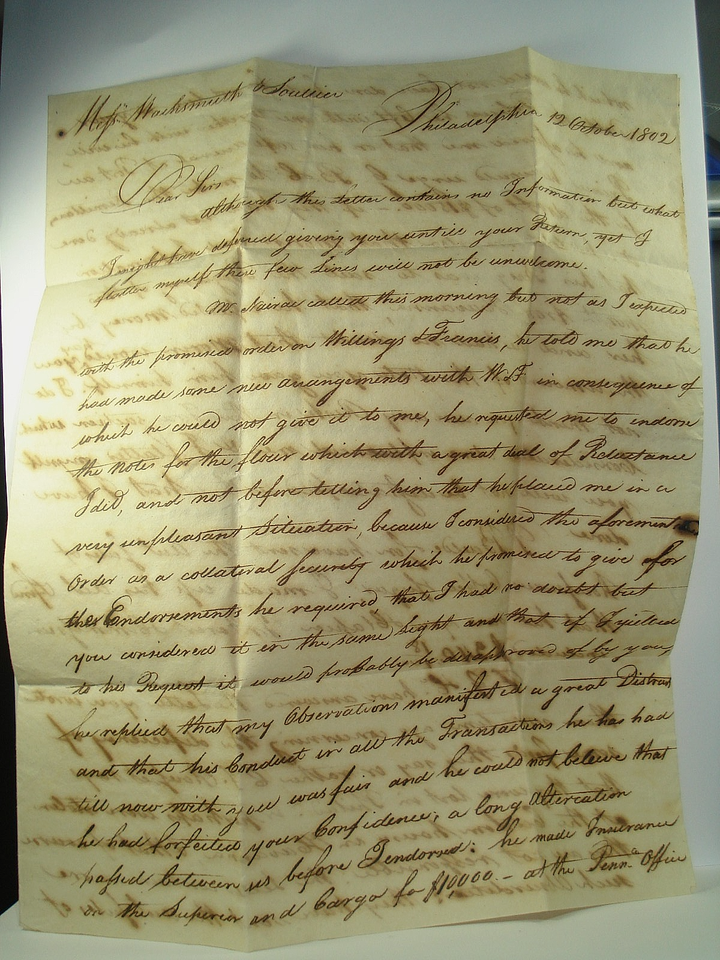 Messrs Wachsmuth & Soullier
Philadelphia 12 October 1802
Dear Sirs
Although this Letter contains no Information but what
I might have defered giving you untill your Return, yet I
flatter myself these few Lines will not be unwelcome.
Mr. Nairac called this morning but not as I expected
with the promised order on Willings & Francis, he told me that he
had made some new arrangements with W.&F in consequence of
which he could not give it to me, he requested me to endorse
the Notes for the flour which with a great deal of Reluctance
I did, and not before telling him that he placed me in a
very unpleasant Situation, because I considered the aforement
Order as a collateral Security which he promised to give for
the Endorsements he required, that I had no doubt but
you considered it in the same Light and that if I yielded
to his Request it would probably be disapproved of by you,
he replied that my Observations manifested a great Distrust
and that his Conduct in all the Transactions he has had
till now with you was fair and he could not believe that
he had forfeited your Confidence; a long Altercation
passed between us before I endorsed: he made Insurance
on the Superior and Cargo for $10,000.- at the Penna. Office